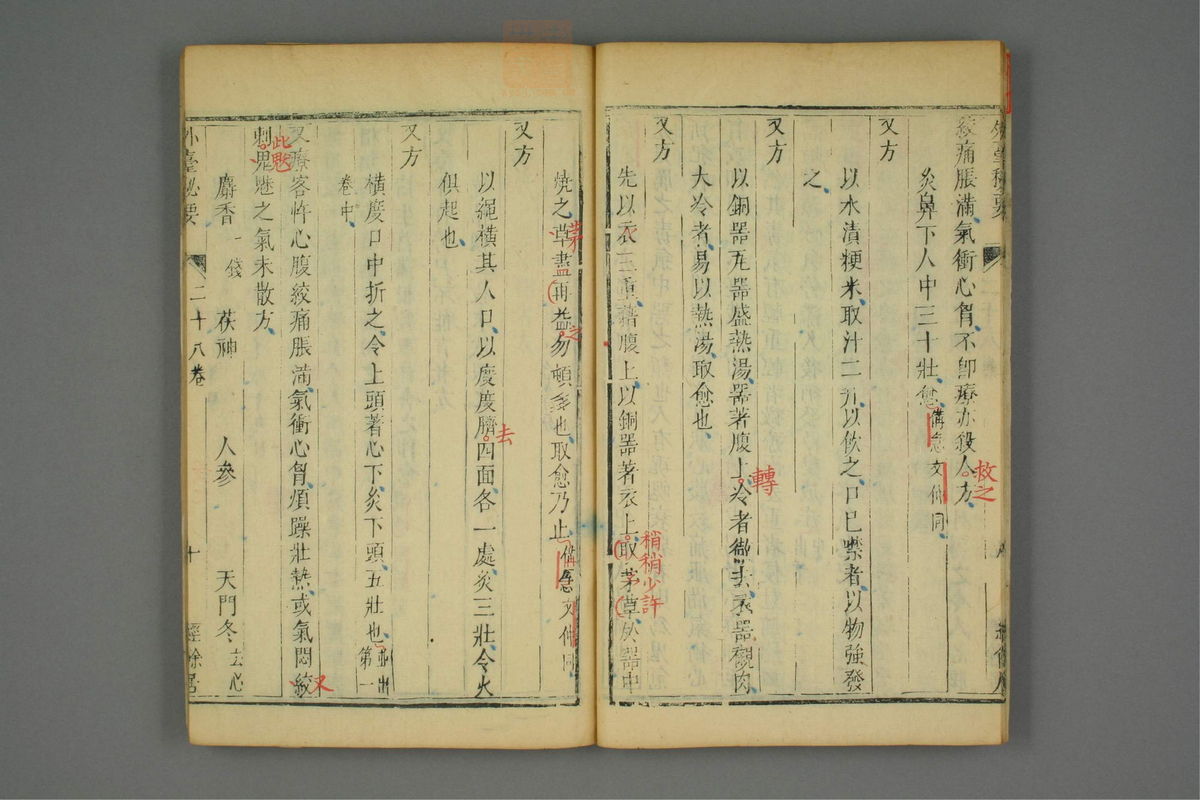 外臺秘要
絞痛脹滿氣衝心胷不卽療亦殺人方
救之
灸鼻下人中三十壯愈備急文仲同
又方
以水漬粳米取汁二升以飲之口已噤者以物強發
之
又方
以銅器瓦器盛熱湯器著腹上冷者徹去衣器襯肉
轉
大冷者易以熱湯取愈也
又方
先以衣三重藉腹上以銅器著衣上取茅草於器中
稍稍少許
燒之草盡再益勿頓多也取愈乃止備急文仲同
茅
之
又方
以繩橫其人口以度度臍四面各一處灸三壯令火
去
俱起也
又方
橫度口中折之令上頭著心下灸下頭五壯也並出第一
卷中
又療客忤心腹絞痛脹滿氣衝心胷煩躁壯熱或氣悶絞
又
刺鬼魅之氣未散方
此
麝香一錢 茯神 人參 天門冬去心
外臺秘要 二十八卷 十 經餘居